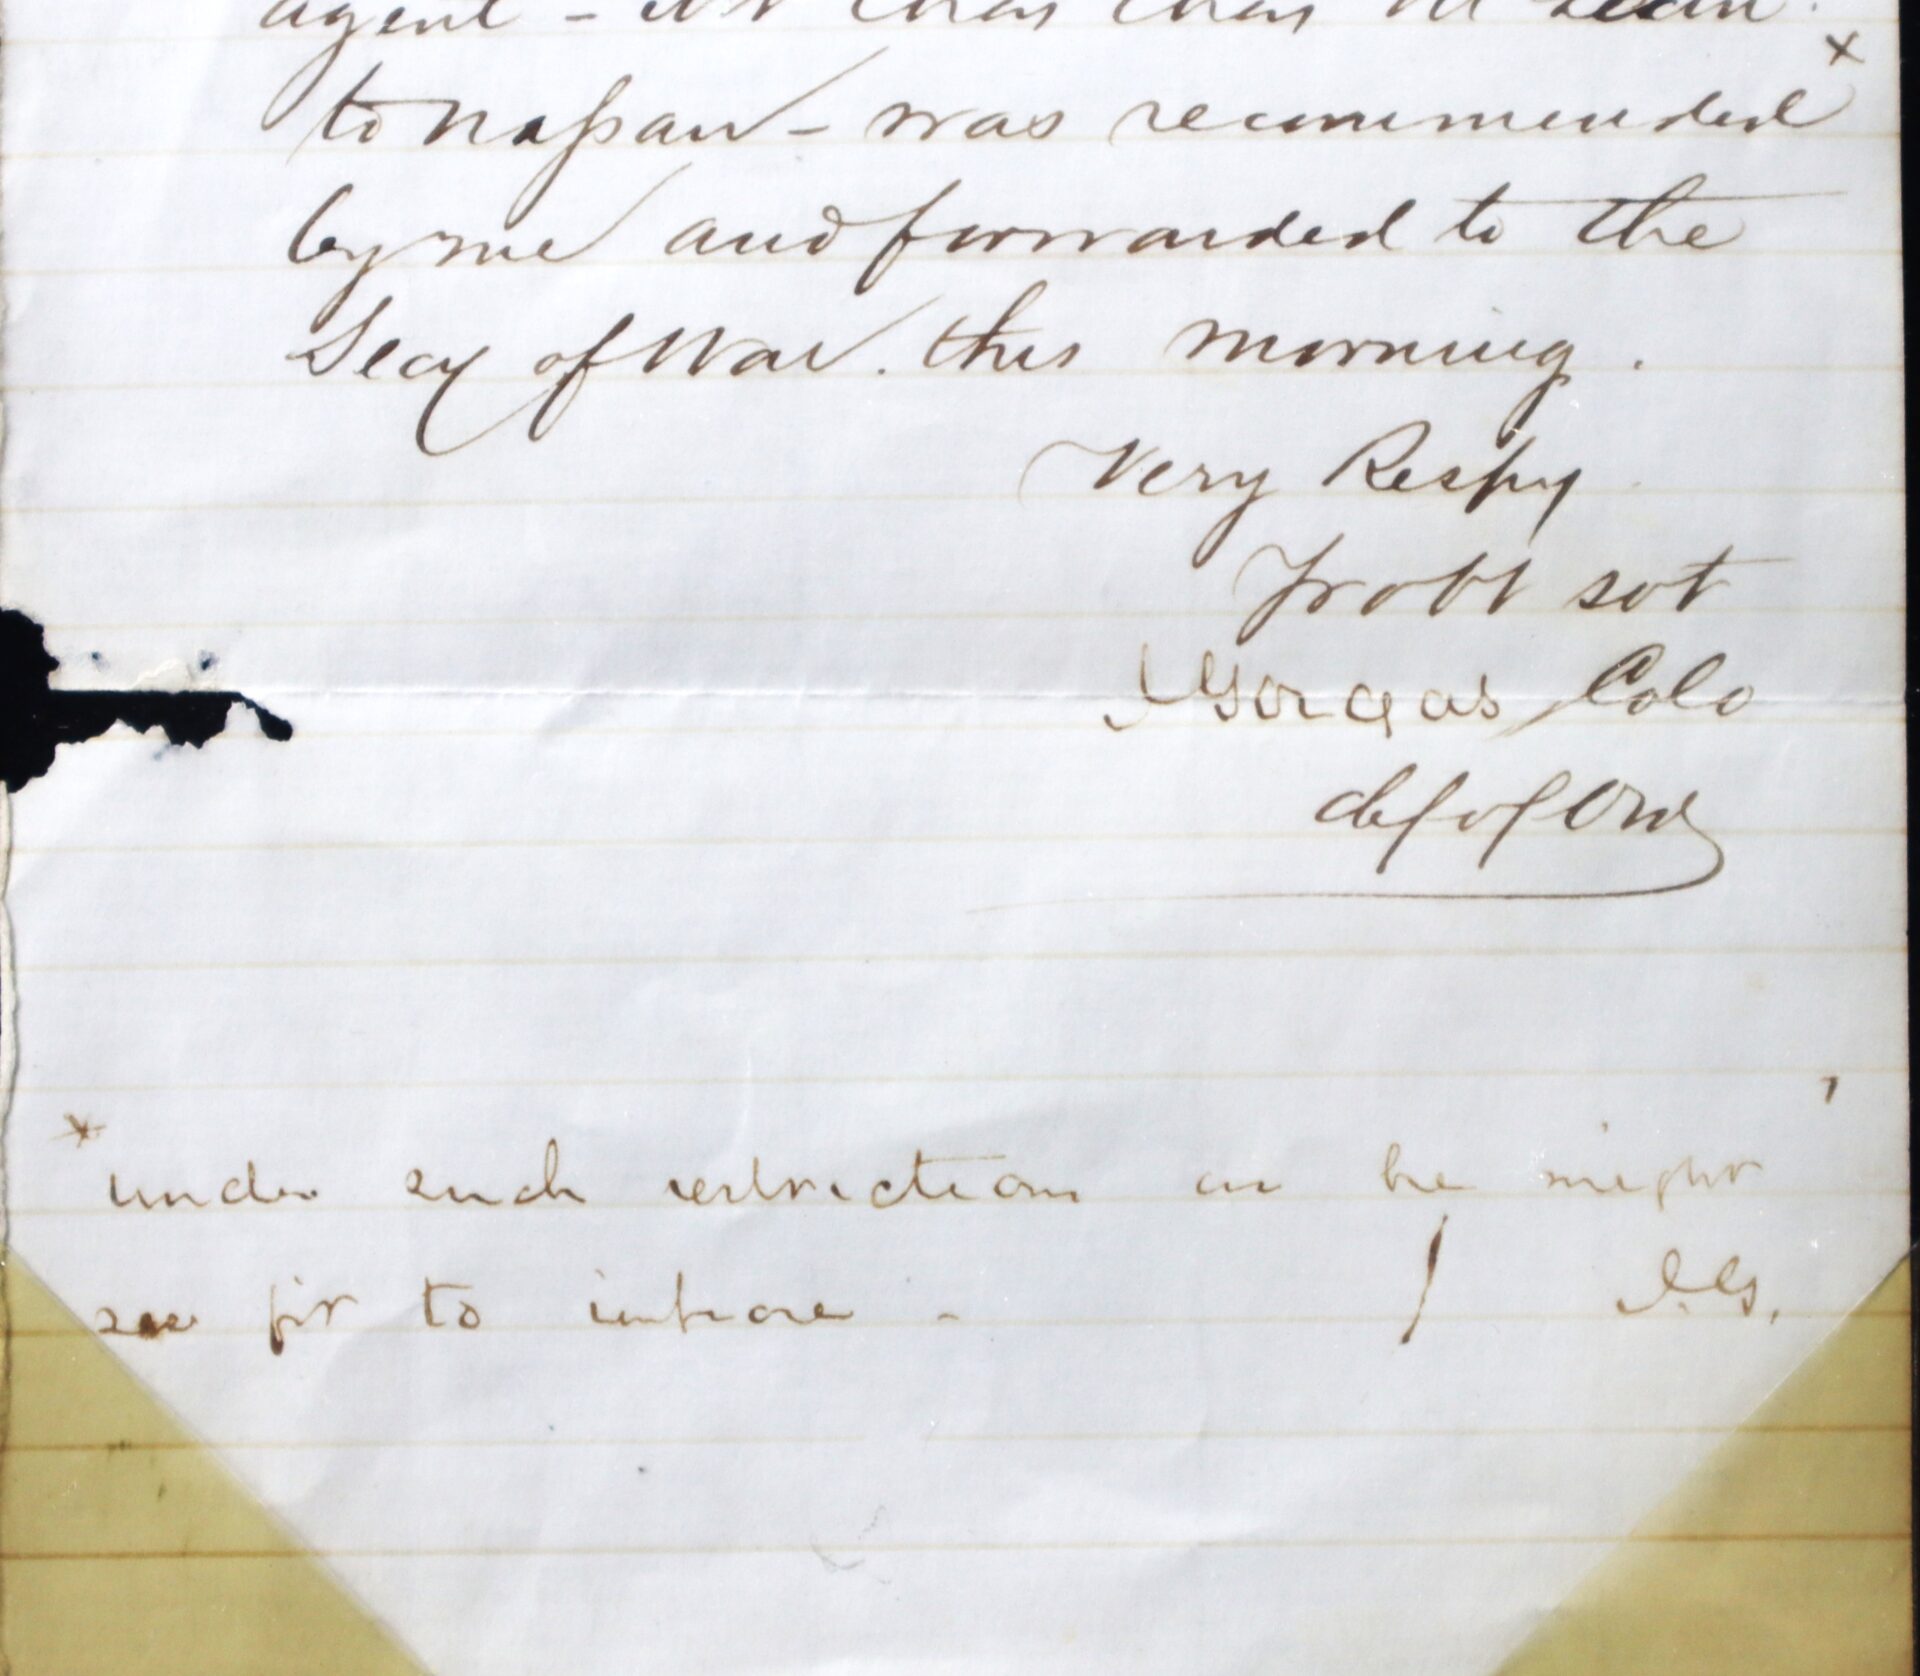 agent -
x
to Nassau - was recommended
by me and forwarded to the
Secy of War. this morning.
Very Respy
Yr obt svt
J Gorgas Colo
chf of Ord
x
under such restrictions as he might
see fit to impose - / J.G.